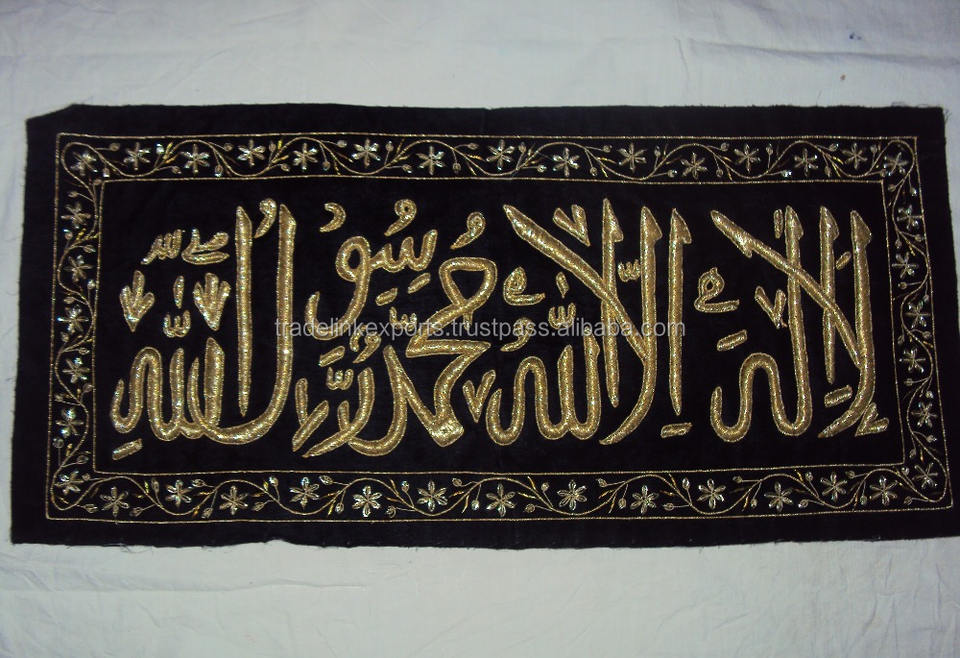 لا إله إلا الله محمد رسول الله
صلى الله
tradelinkexports.trustpass.alibaba.com